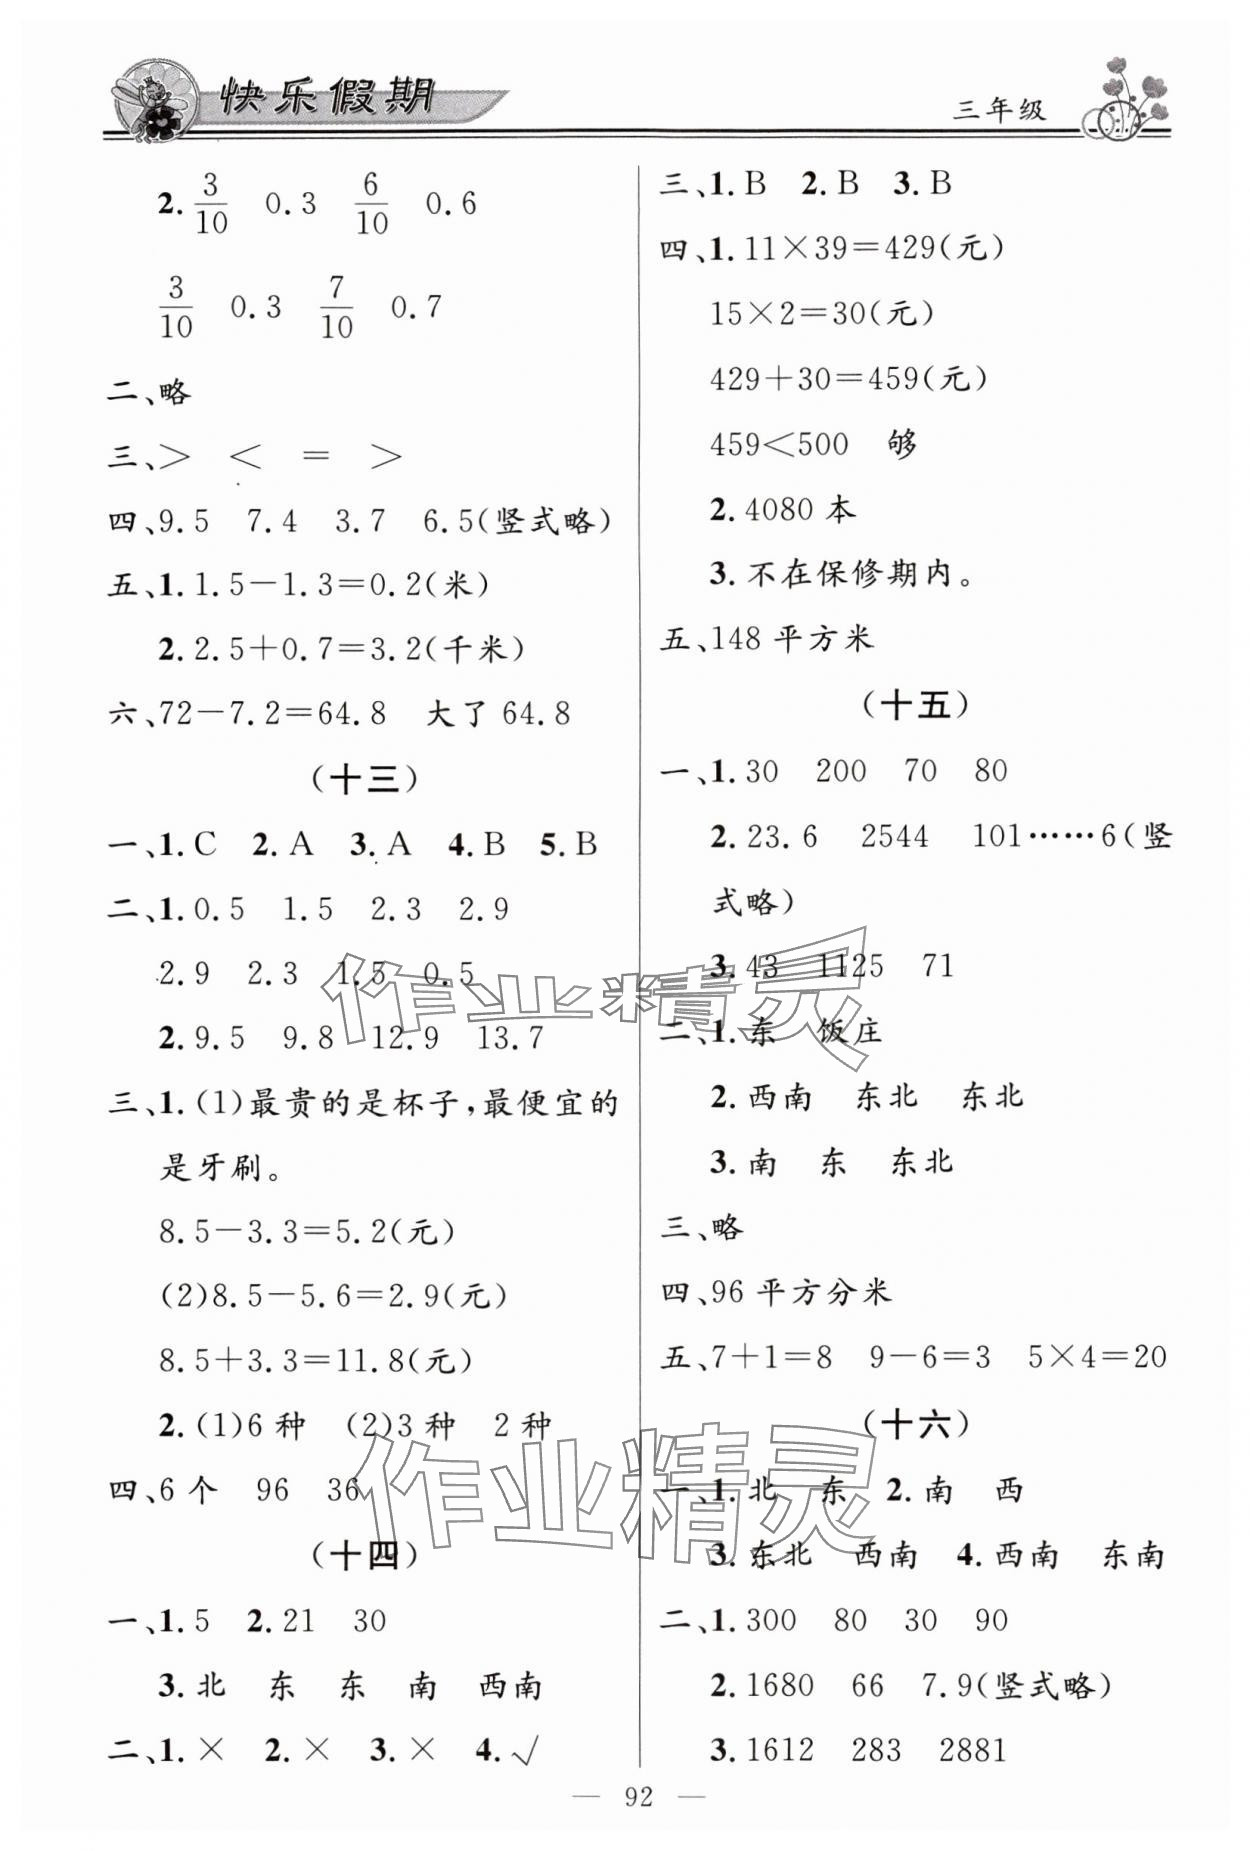 快乐假期
三年级
2. 3/10 0.3 6/10 0.6
3/10 0.3 7/10 0.7
二、略
三、> < = >
四、9.5 7.4 3.7 6.5(竖式略)
五、1. 1.5-1.3=0.2(米)
2. 2.5+0.7=3.2(千米)
六、72-7.2=64.8 大了 64.8
(十三)
一、1. C 2. A 3. A 4. B 5. B
二、1. 0.5 1.5 2.3 2.9
2.9 2.3 1.5 0.5
2. 9.5 9.8 12.9 13.7
三、1. (1)最贵的是杯子,最便宜的
是牙刷。
8.5-3.3=5.2(元)
(2)8.5-5.6=2.9(元)
8.5+3.3=11.8(元)
2. (1)6 种 (2)3 种 2 种
四、6 个 96 36
(十四)
一、1. 5 2. 21 30
3. 北 东 东 南 西南
二、1. × 2. × 3. × 4. √
三、1. B 2. B 3. B
四、1. 11×39=429(元)
15×2=30(元)
429+30=459(元)
459<500 够
2. 4080 本
3. 不在保修期内。
五、148 平方米
(十五)
一、1. 30 200 70 80
2. 23.6 2544 101……6(竖
式略)
3. 43 1125 71
二、1. 东 饭庄
2. 西南 东北 东北
3. 南 东 东北
三、略
四、96 平方分米
五、7+1=8 9-6=3 5×4=20
(十六)
一、1. 北 东 2. 南 西
3. 东北 西南 4. 西南 东南
二、1. 300 80 30 90
2. 1680 66 7.9(竖式略)
3. 1612 283 2881
— 92 —
作业精灵
作业精灵